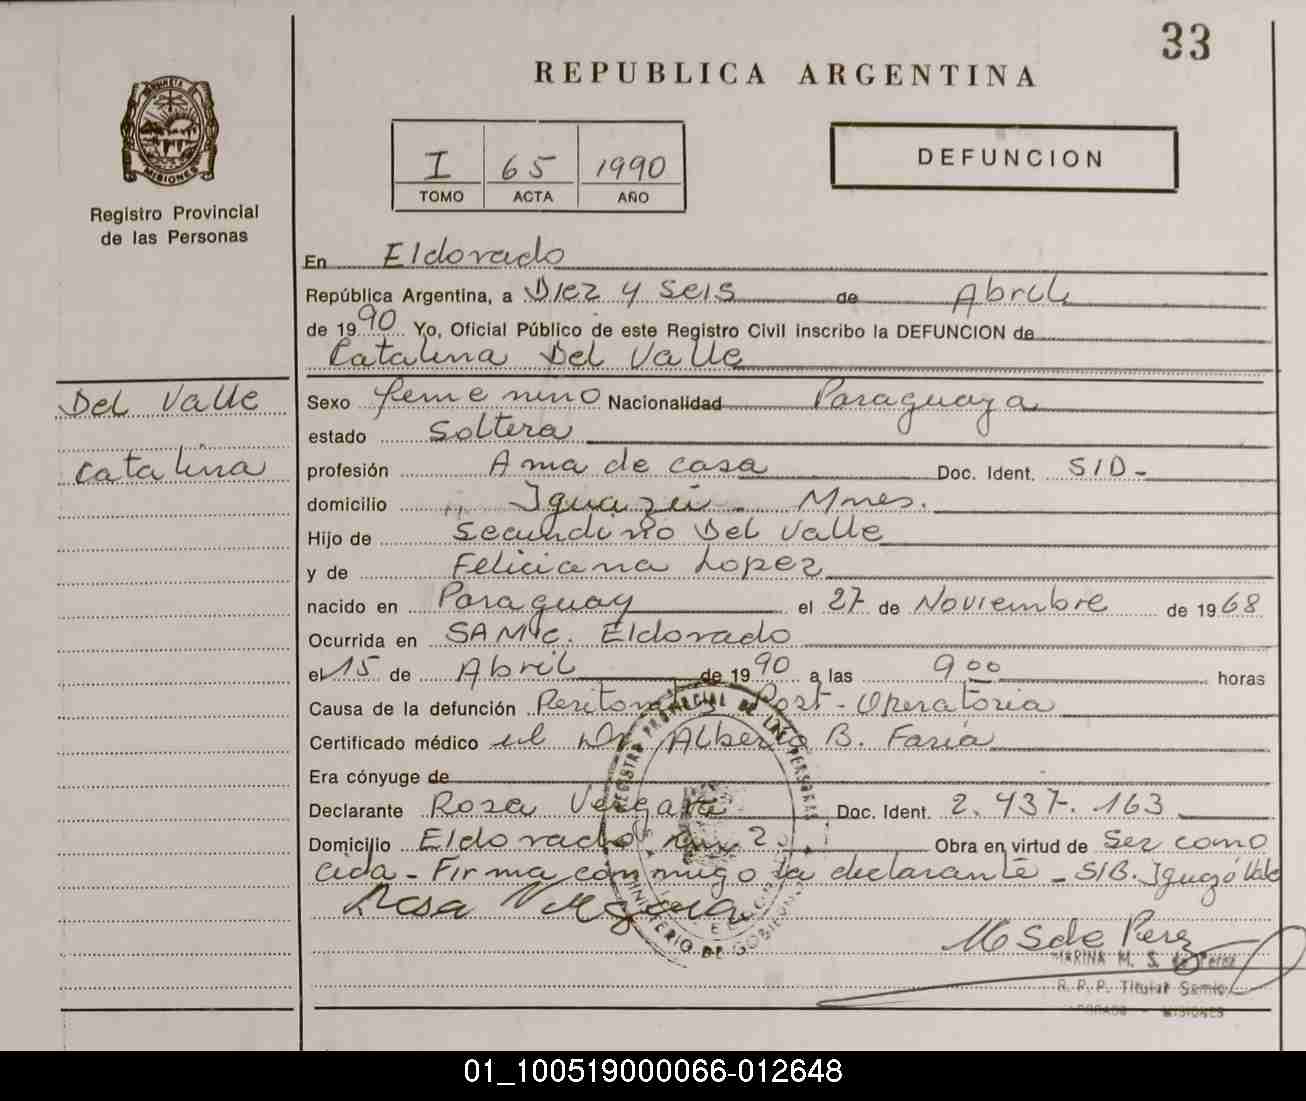 33
REPUBLICA ARGENTINA
PROVINCIA DE
MISIONES
Registro Provincial
de las Personas
I 65 1990
TOMO ACTA AÑO
DEFUNCION
En Eldorado
República Argentina, a Diez y seis de Abril
de 1990 Yo, Oficial Público de este Registro Civil inscribo la DEFUNCION de
Catalina Del Valle
Del Valle
Catalina
Sexo femenino Nacionalidad Paraguaya
estado Soltera
profesión Ama de casa Doc. Ident. S/D-
domicilio Iguazú - Mnes.
Hijo de Secundino Del Valle
y de Feliciana Lopez
nacido en Paraguay el 27 de Noviembre de 1968
Ocurrida en SAMIC. Eldorado
el 15 de Abril de 1990 a las 9 00 horas
Causa de la defunción Peritonitis Post-Operatoria
Certificado médico del Dr. Alberto B. Faria
Era cónyuge de
Declarante Rosa Vergara Doc. Ident. 2.437.163
Domicilio Eldorado km 2 Obra en virtud de Ser cono
cida - Firma conmigo la declarante - S/B. Iguazú Vale
Rosa Vergara
M S de Perez
MARINA M. S. de Perez
R. P. P. Titular Samic
ELDORADO - MISIONES
REGISTRO PROVINCIAL DE LAS PERSONAS
MINISTERIO DE GOBIERNO
01_100519000066-012648